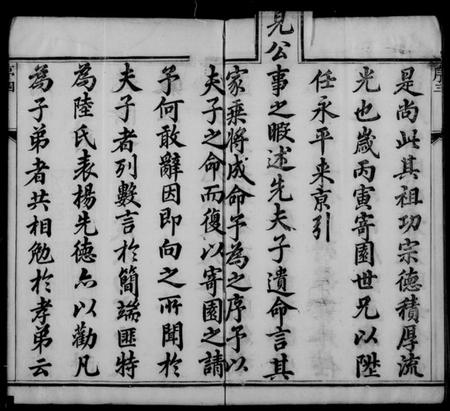 是尚此其祖功宗德積厚流
光也歲丙寅寄園世兄以陞
任永平来京引
見公事之暇述先夫子遺命言其
家乘將成命予為之序予以
夫子之命而復以寄園之請
予何敢辭因即向之所聞於
夫子者列數言於簡端匪特
為陸氏表楊先德亦以勸凡
為子弟者共相勉於孝弟云